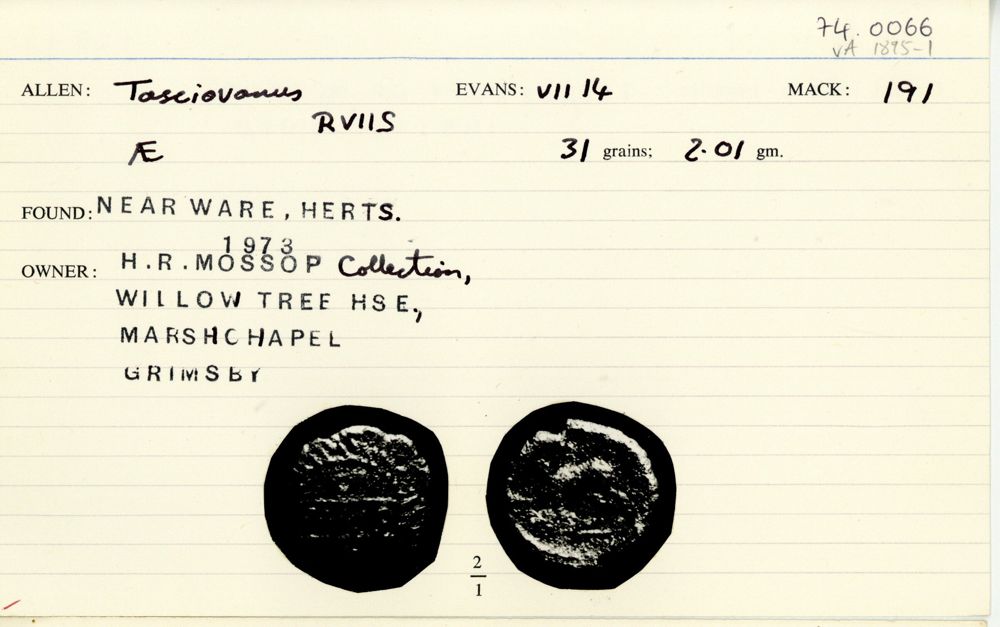 74.0066
VA 1895-1
ALLEN: Tasciovanus EVANS: VII 14 MACK: 191
RVIIS
Æ 31 grains; 2.01 gm.
FOUND: NEAR WARE, HERTS.
1973
OWNER: H.R.MOSSOP Collection,
WILLOW TREE HSE.,
MARSHCHAPEL
GRIMSBY
2
1